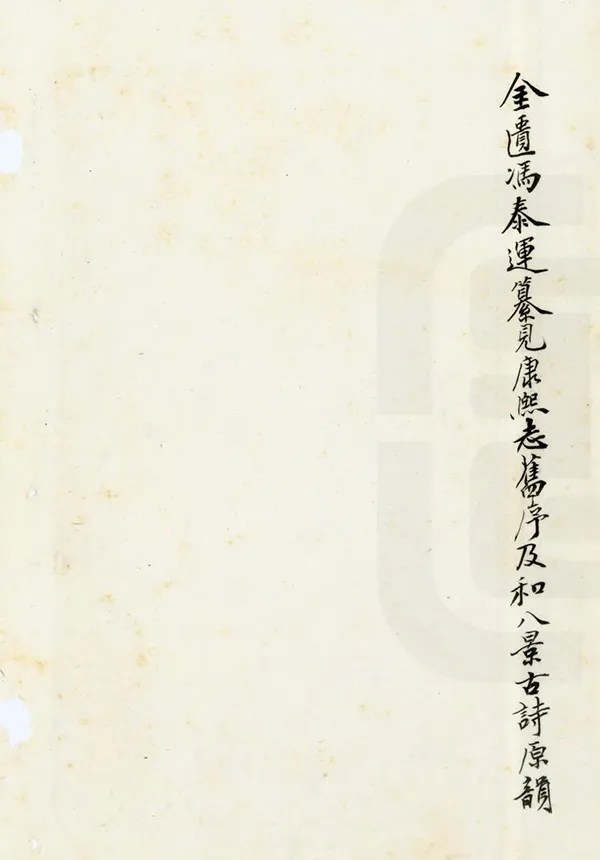 全遺馮泰運纂見康熙志舊序及和八景古詩原韻